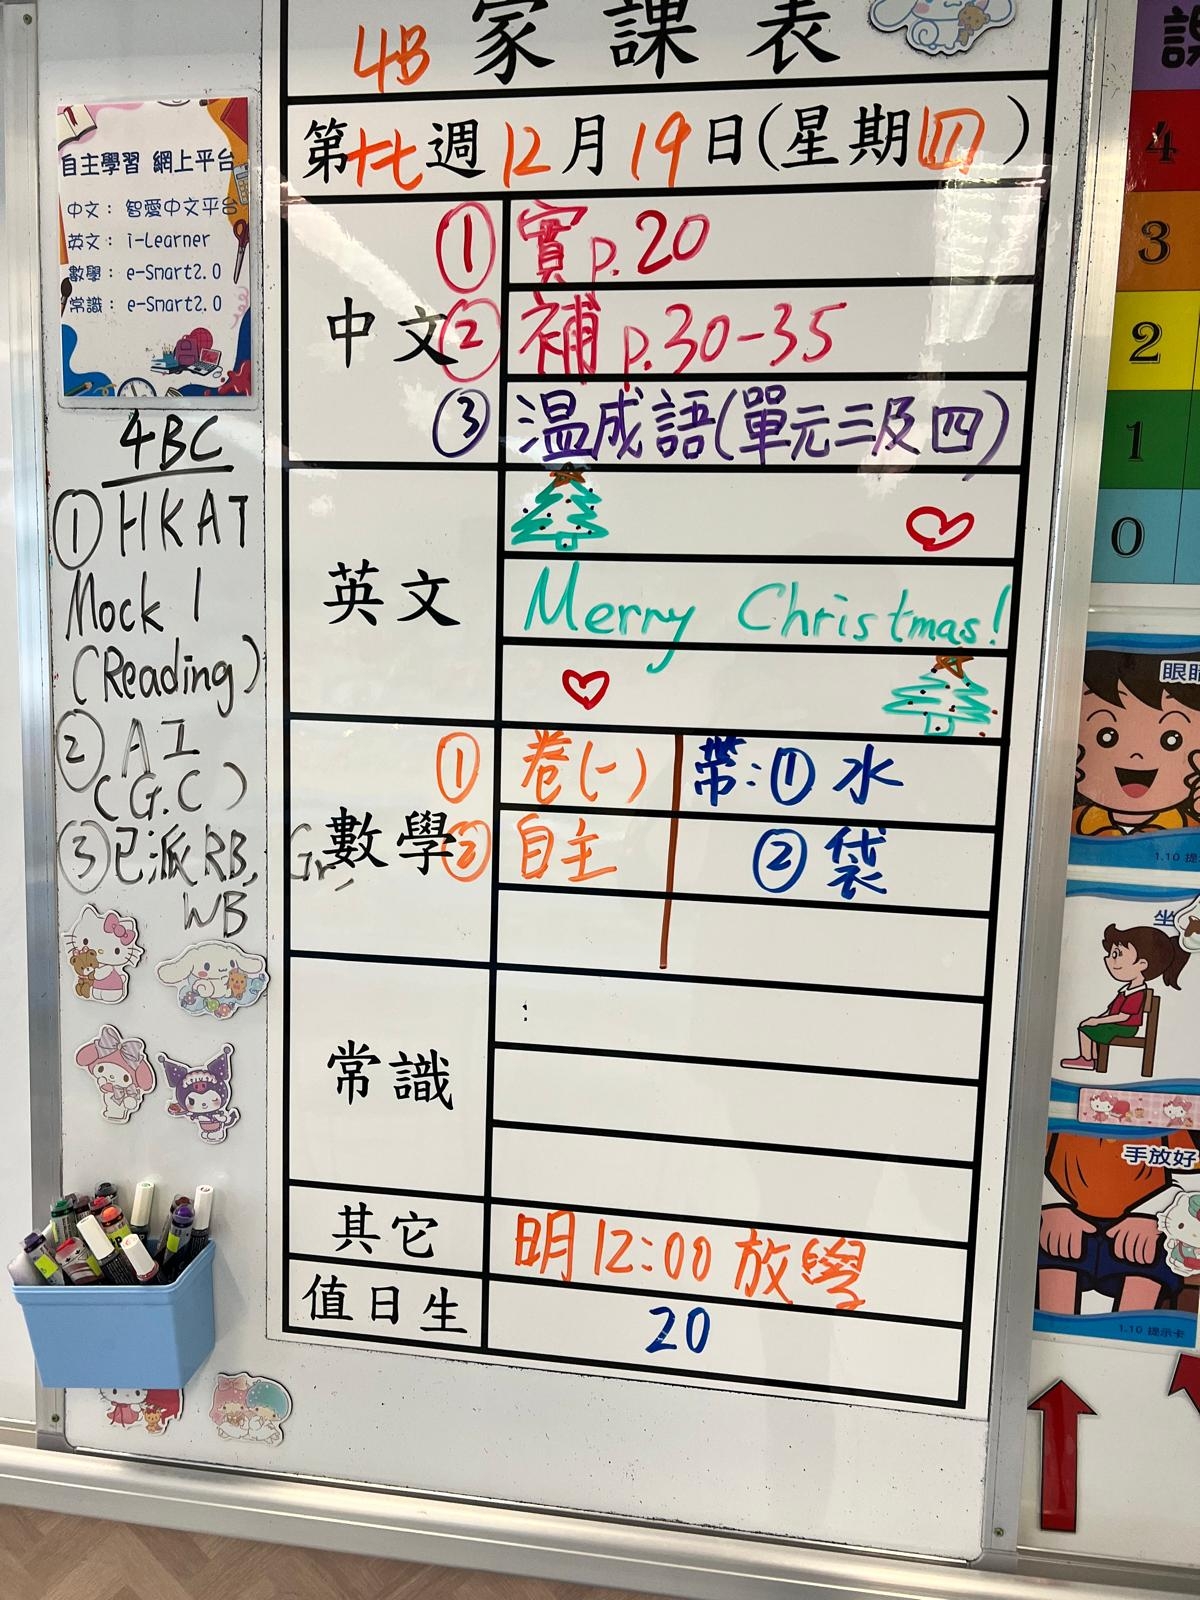 4B 家課表
第十七週12月19日(星期四)
自主學習 網上平台
中文： 智愛中文平台
英文： i-Learner
數學： e-Smart2.0
常識： e-Smart2.0
4BC
① HKAT
Mock 1
(Reading)
② AI
(G.C)
③ 已派RB, Gr,
WB
中文
① 實 p.20
② 補 p.30-35
③ 温成語(單元三及四)
英文
Merry Christmas!
數學
① 卷(一) 帶:① 水
② 自主 ② 袋
常識
:
其它
明12:00放學
值日生
20
4
3
2
1
0
1.10
坐
手放好
1.10 提示卡